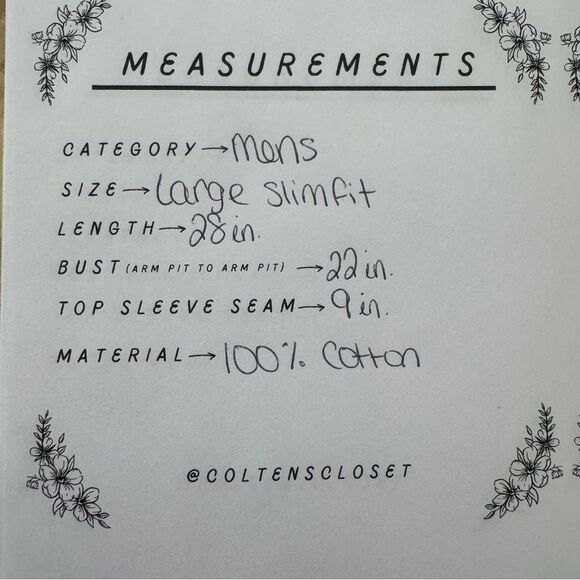 MEASUREMENTS
CATEGORY → Mens
SIZE → Large Slim fit
LENGTH → 28 in.
BUST (ARM PIT TO ARM PIT) → 22 in.
TOP SLEEVE SEAM → 9 in.
MATERIAL → 100% Cotton
@COLTENSCLOSET